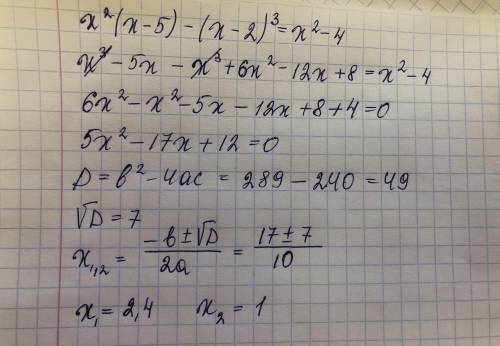 x²(x-5) - (x-2)³ = x²-4
x³ - 5x - x³ + 6x² - 12x + 8 = x² - 4
6x² - x² - 5x - 12x + 8 + 4 = 0
5x² - 17x + 12 = 0
D = b² - 4ac = 289 - 240 = 49
√D = 7
x₁,₂ = (-b ± √D)/2a = (17 ± 7)/10
x₁ = 2,4 x₂ = 1